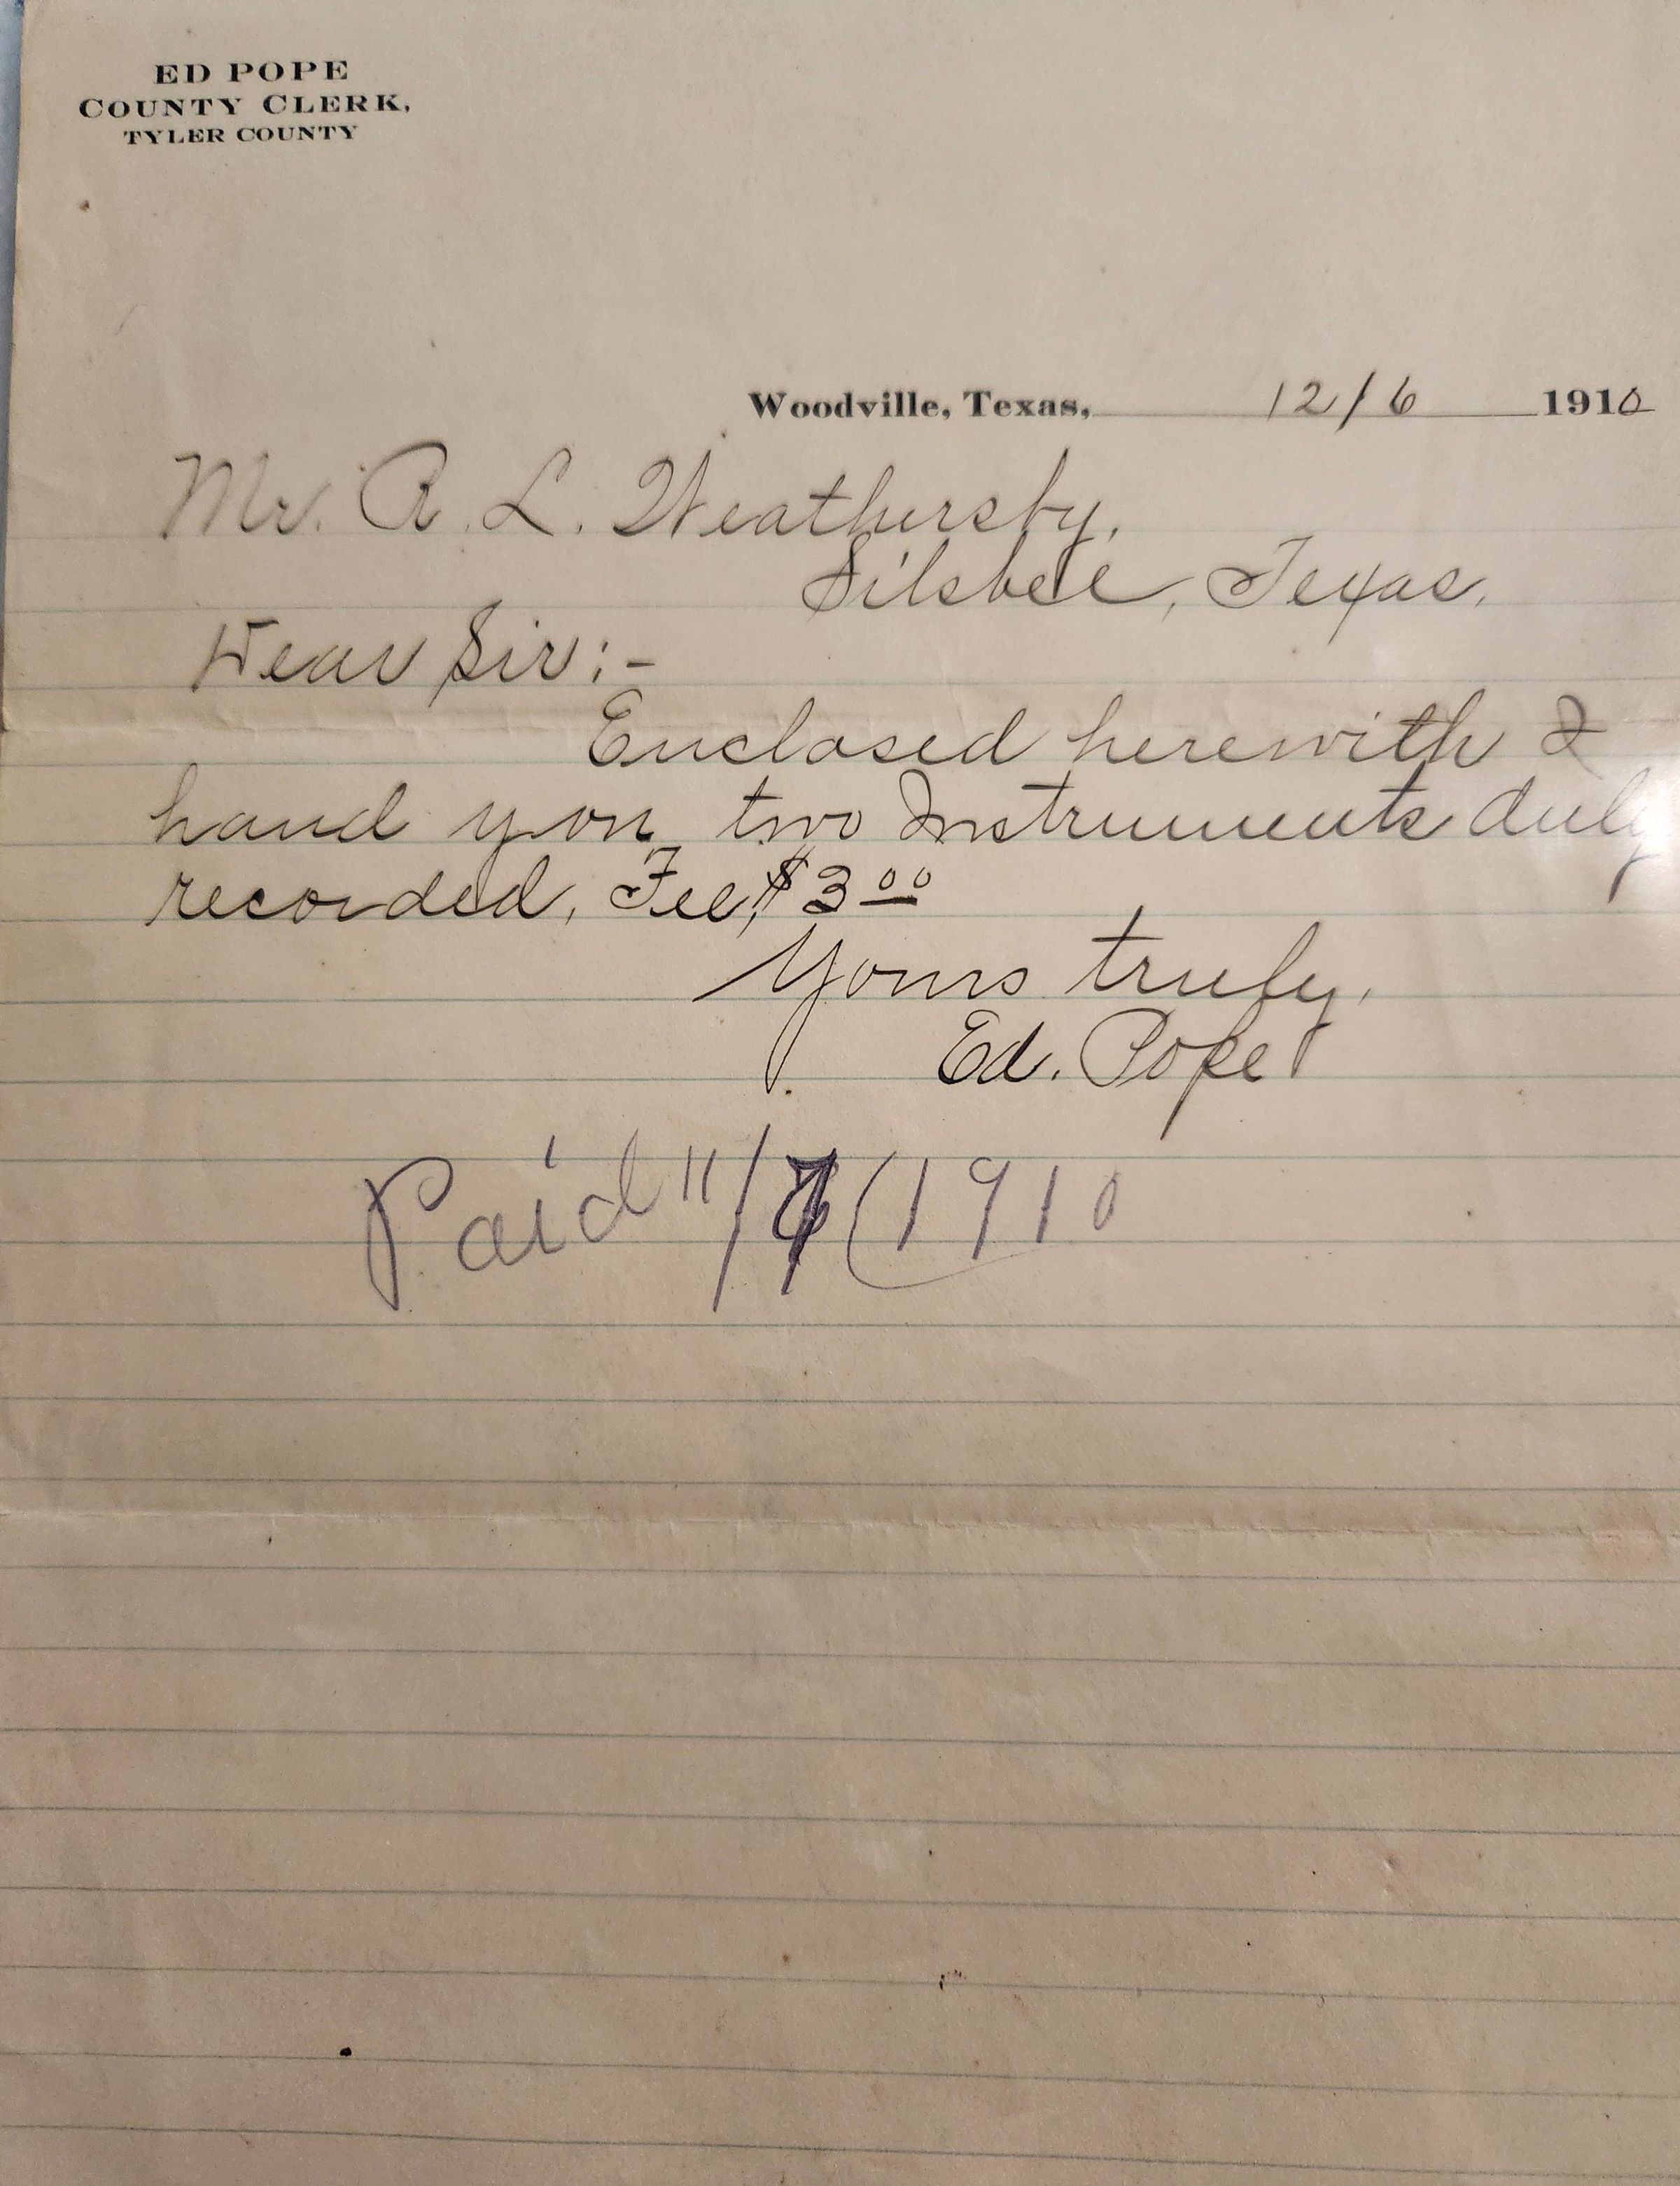 ED POPE
COUNTY CLERK,
TYLER COUNTY
Woodville, Texas, 12/6 1910
Mr. R. L. Weathersby,
Silsbee, Texas.
Dear Sir:-
Enclosed herewith I
hand you two Instruments duly
recorded, Fee, $3 00
Yours truly,
Ed. Pope
Paid 11/7/1910